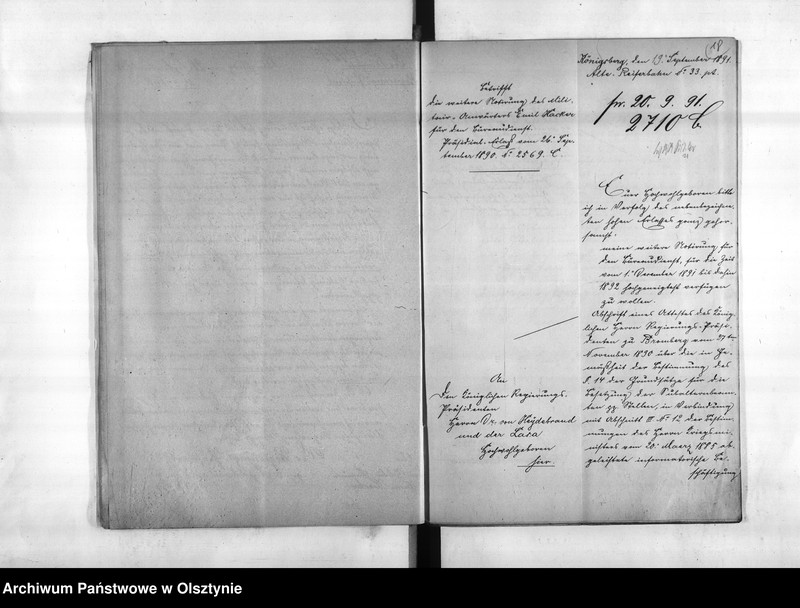 18
Königsberg, den 19. September 1891.
Alte Reiferbahn No 33. pt.
pr. 20. 9. 91.
2710 C.
Betrifft
die weitere Notirung des Mili-
tair-Anwärters Emil Hacker
für den Bureaudienst.
Präsidial-Erlaß vom 26. Sep-
tember 1890. No 2569. C.
Euer Hochwohlgeboren bitte
ich in Verfolg des nebenbezeichne-
ten hohen Erlasses ganz gehor-
samst:
meine weitere Notirung für
den Bureaudienst, für die Zeit
vom 1. December 1891 bis dahin
1892 hochgeneigtest verfügen
zu wollen.
Abschrift eines Attestes des König-
lichen Herrn Regierungs-Präsi-
denten zu Bromberg vom 27ten
November 1890 über die in Ge-
mäßheit der Bestimmung des
§. 14 der Grundsätze für die
Besetzung der Subalternbeam-
ten pp Stellen, in Verbindung
mit Abschnitt II No 12 der Bestim-
mungen des Herrn Kriegsmi-
nisters vom 20. Maerz 1885 ab-
geleistete informatorische Be-
schäftigung
An
den Königlichen Regierungs-
Präsidenten
Herrn Dr. von Heydebrand
und der Lasa
Hochwohlgeboren
hier
Archiwum Państwowe w Olsztynie